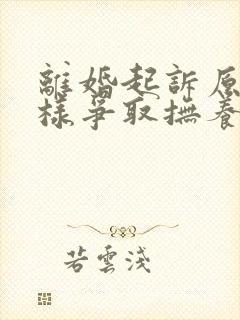 離婚起訴原
樣爭取撫養
若雲淺